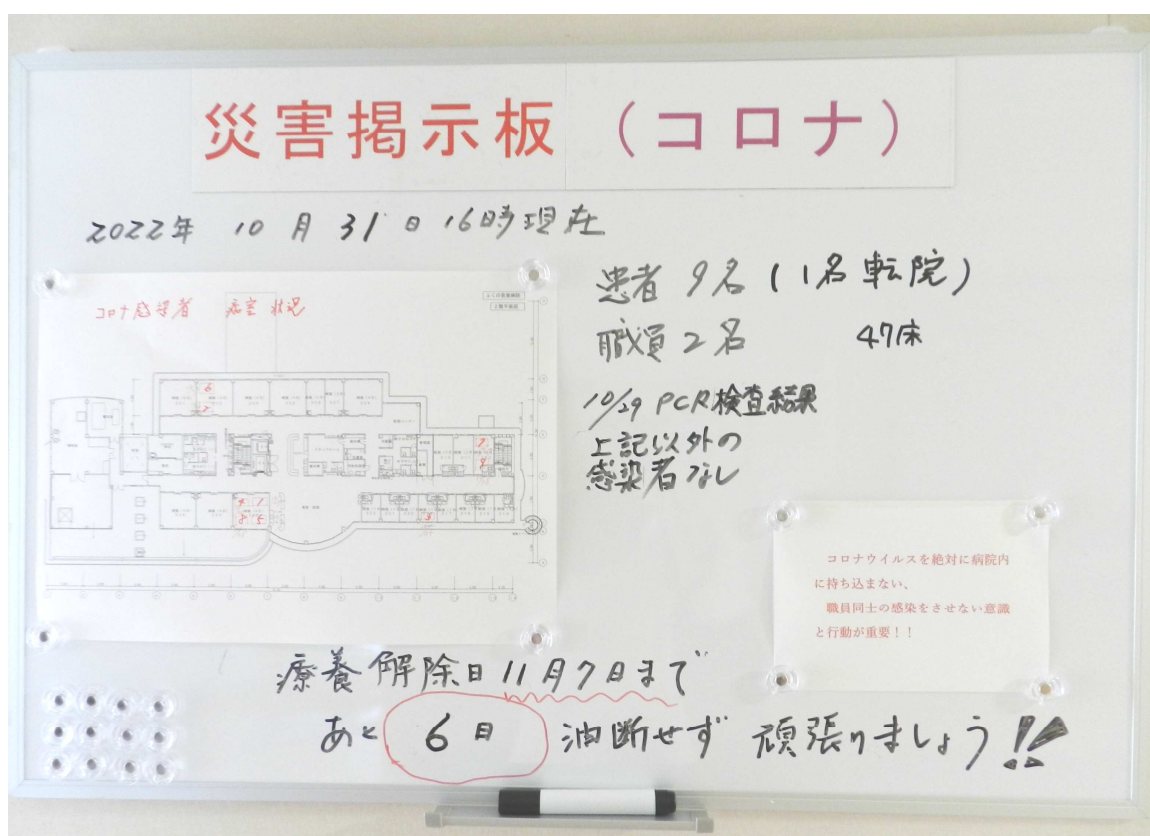 災害掲示板（コロナ）
2022年 10月 31日 16時現在
コロナ感染者 病室 状況
患者 9名（1名転院）
職員 2名 47床
10/29 PCR検査結果
上記以外の
感染者なし
コロナウイルスを絶対に病院内
に持ち込まない、
職員同士の感染をさせない意識
と行動が重要！！
療養解除日 11月7日まで
あと 6日 油断せず 頑張りましょう!!